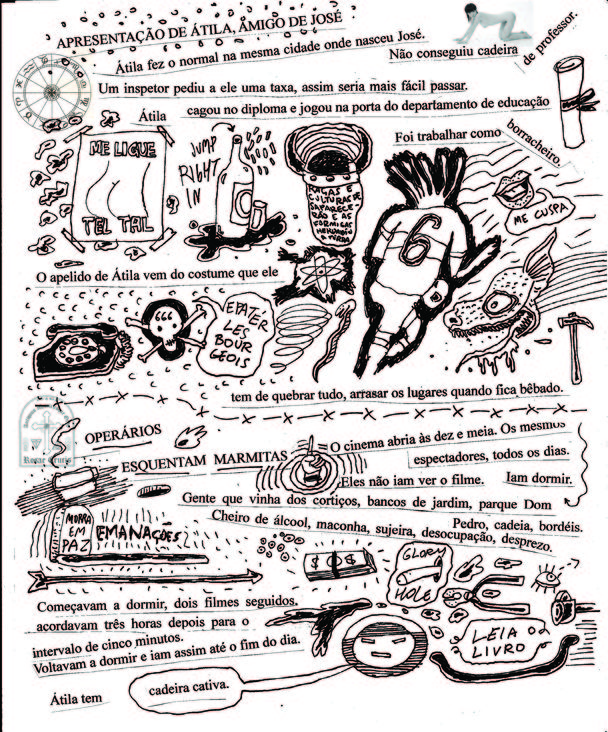 APRESENTAÇÃO DE ÁTILA, AMIGO DE JOSÉ
Átila fez o normal na mesma cidade onde nasceu José.
Não conseguiu cadeira
de professor.
Um inspetor pediu a ele uma taxa, assim seria mais fácil passar.
Átila
cagou no diploma e jogou na porta do departamento de educação
Foi trabalhar como
borracheiro.
ME LIGUE
TEL TAL
JUMP
RIGHT
IN
RAÇAS E
CULTURAS DE
SAPARECE-
RÃO E AS
FORMIGAS
HERDARÃO
A TERRA
6
ME CUSPA
O apelido de Átila vem do costume que ele
666
EPATER
LES
BOUR
GEOIS
tem de quebrar tudo, arrasar os lugares quando fica bêbado.
OPERÁRIOS
ESQUENTAM MARMITAS
O cinema abria às dez e meia. Os mesmos
espectadores, todos os dias.
Eles não iam ver o filme.
Iam dormir.
Gente que vinha dos cortiços, bancos de jardim, parque Dom
Pedro, cadeia, bordéis.
Cheiro de álcool, maconha, sujeira, desocupação, desprezo.
MORRA
EM
PAZ
EMANAÇÕES
$ O $
GLORY
HOLE
Começavam a dormir, dois filmes seguidos.
acordavam três horas depois para o
intervalo de cinco minutos.
Voltavam a dormir e iam assim até o fim do dia.
LEIA O
LIVRO
Átila tem
cadeira cativa.